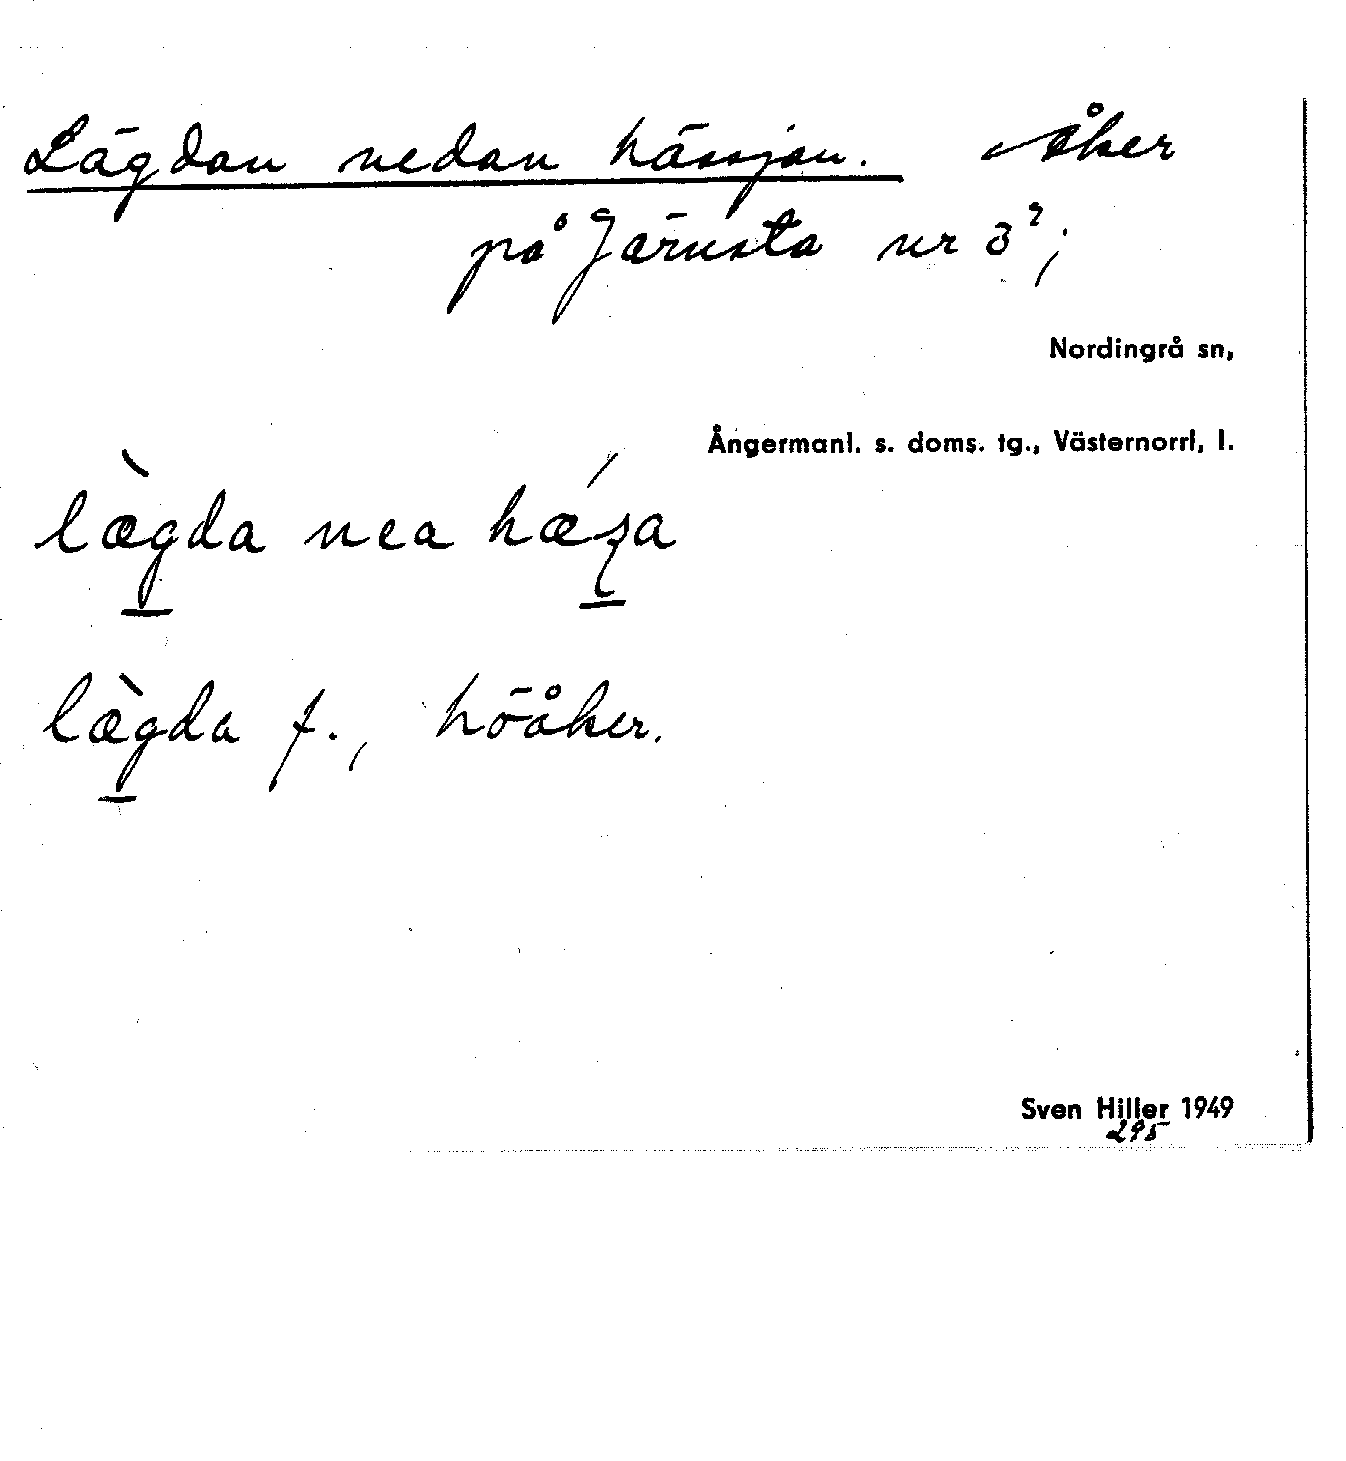 Lägdan nedan hässjan. Åker
på Järesta nr 3²;
Nordingrå sn,
Ångermanl. s. doms. tg., Västernorrl. l.
lægda nea hæʂa
lægda f., höåker.
Sven Hiller 1949
295